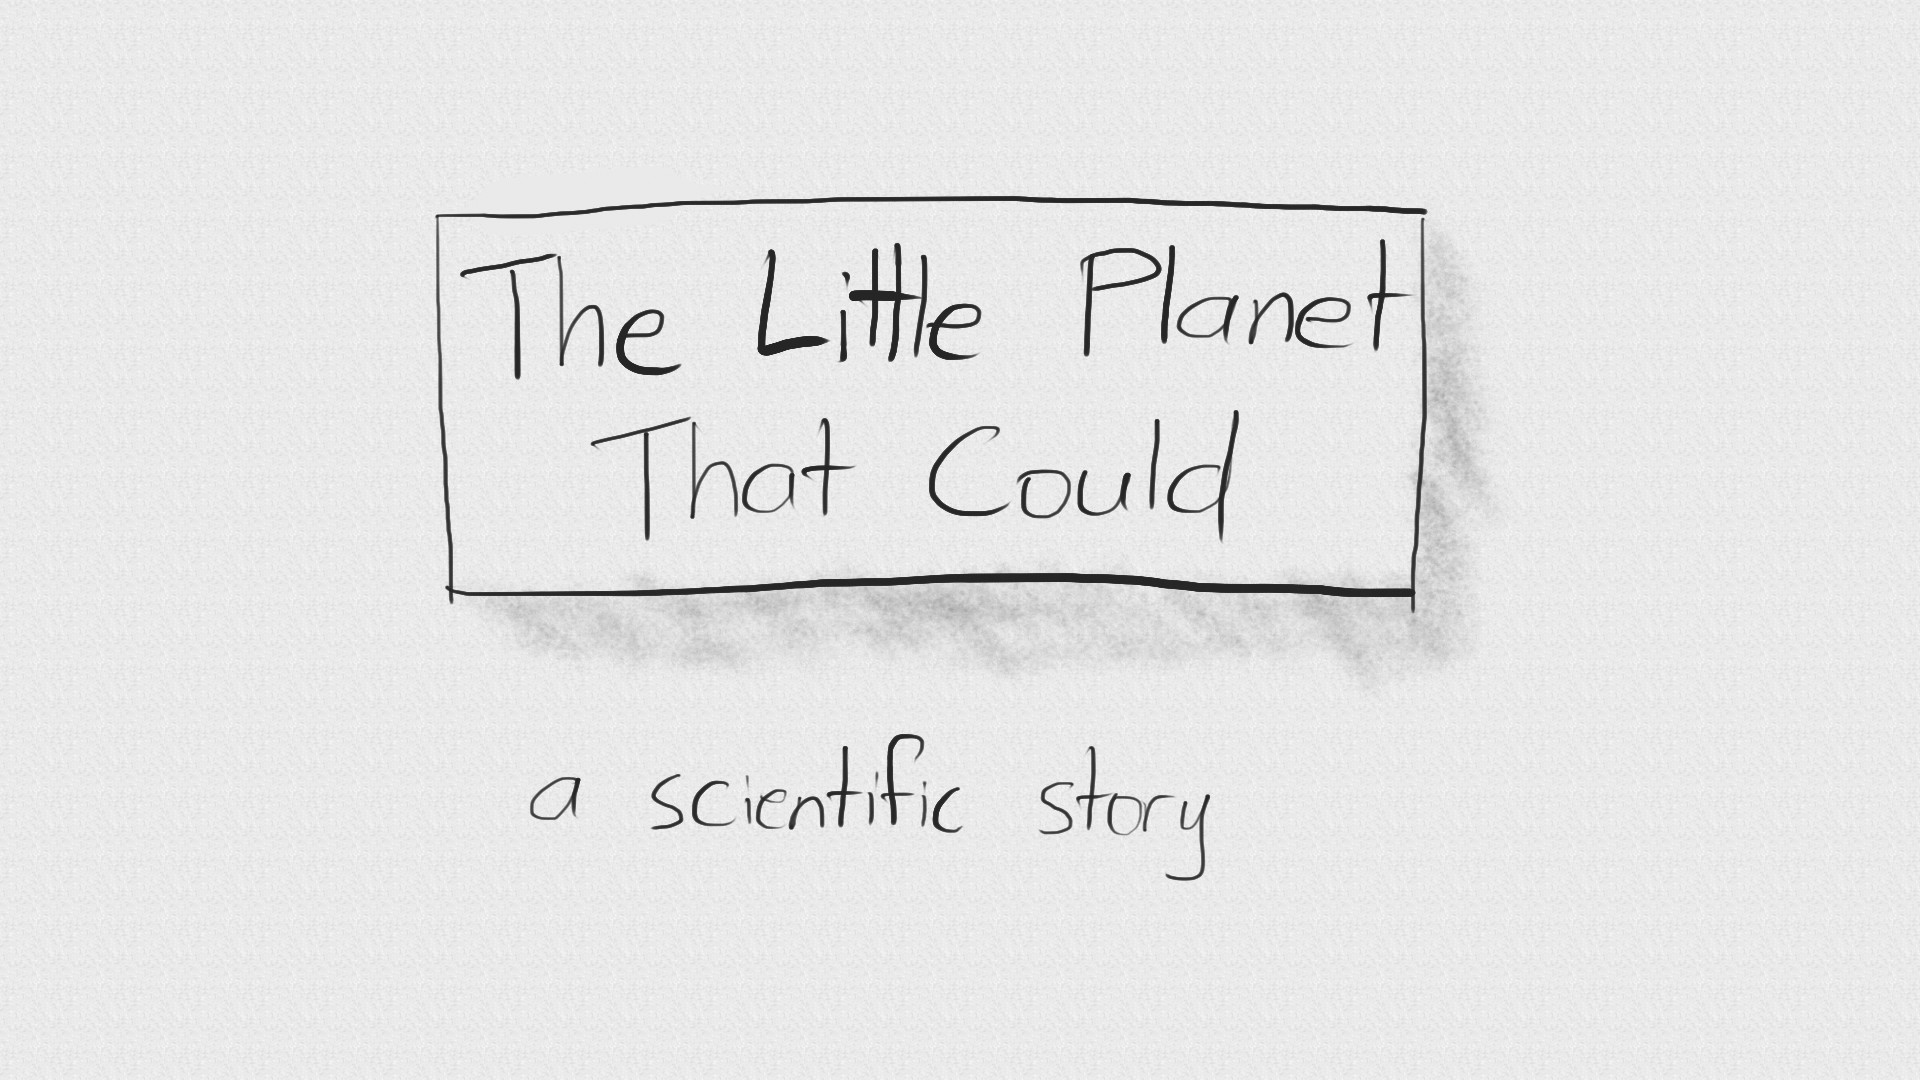 The Little Planet
That Could
a scientific story